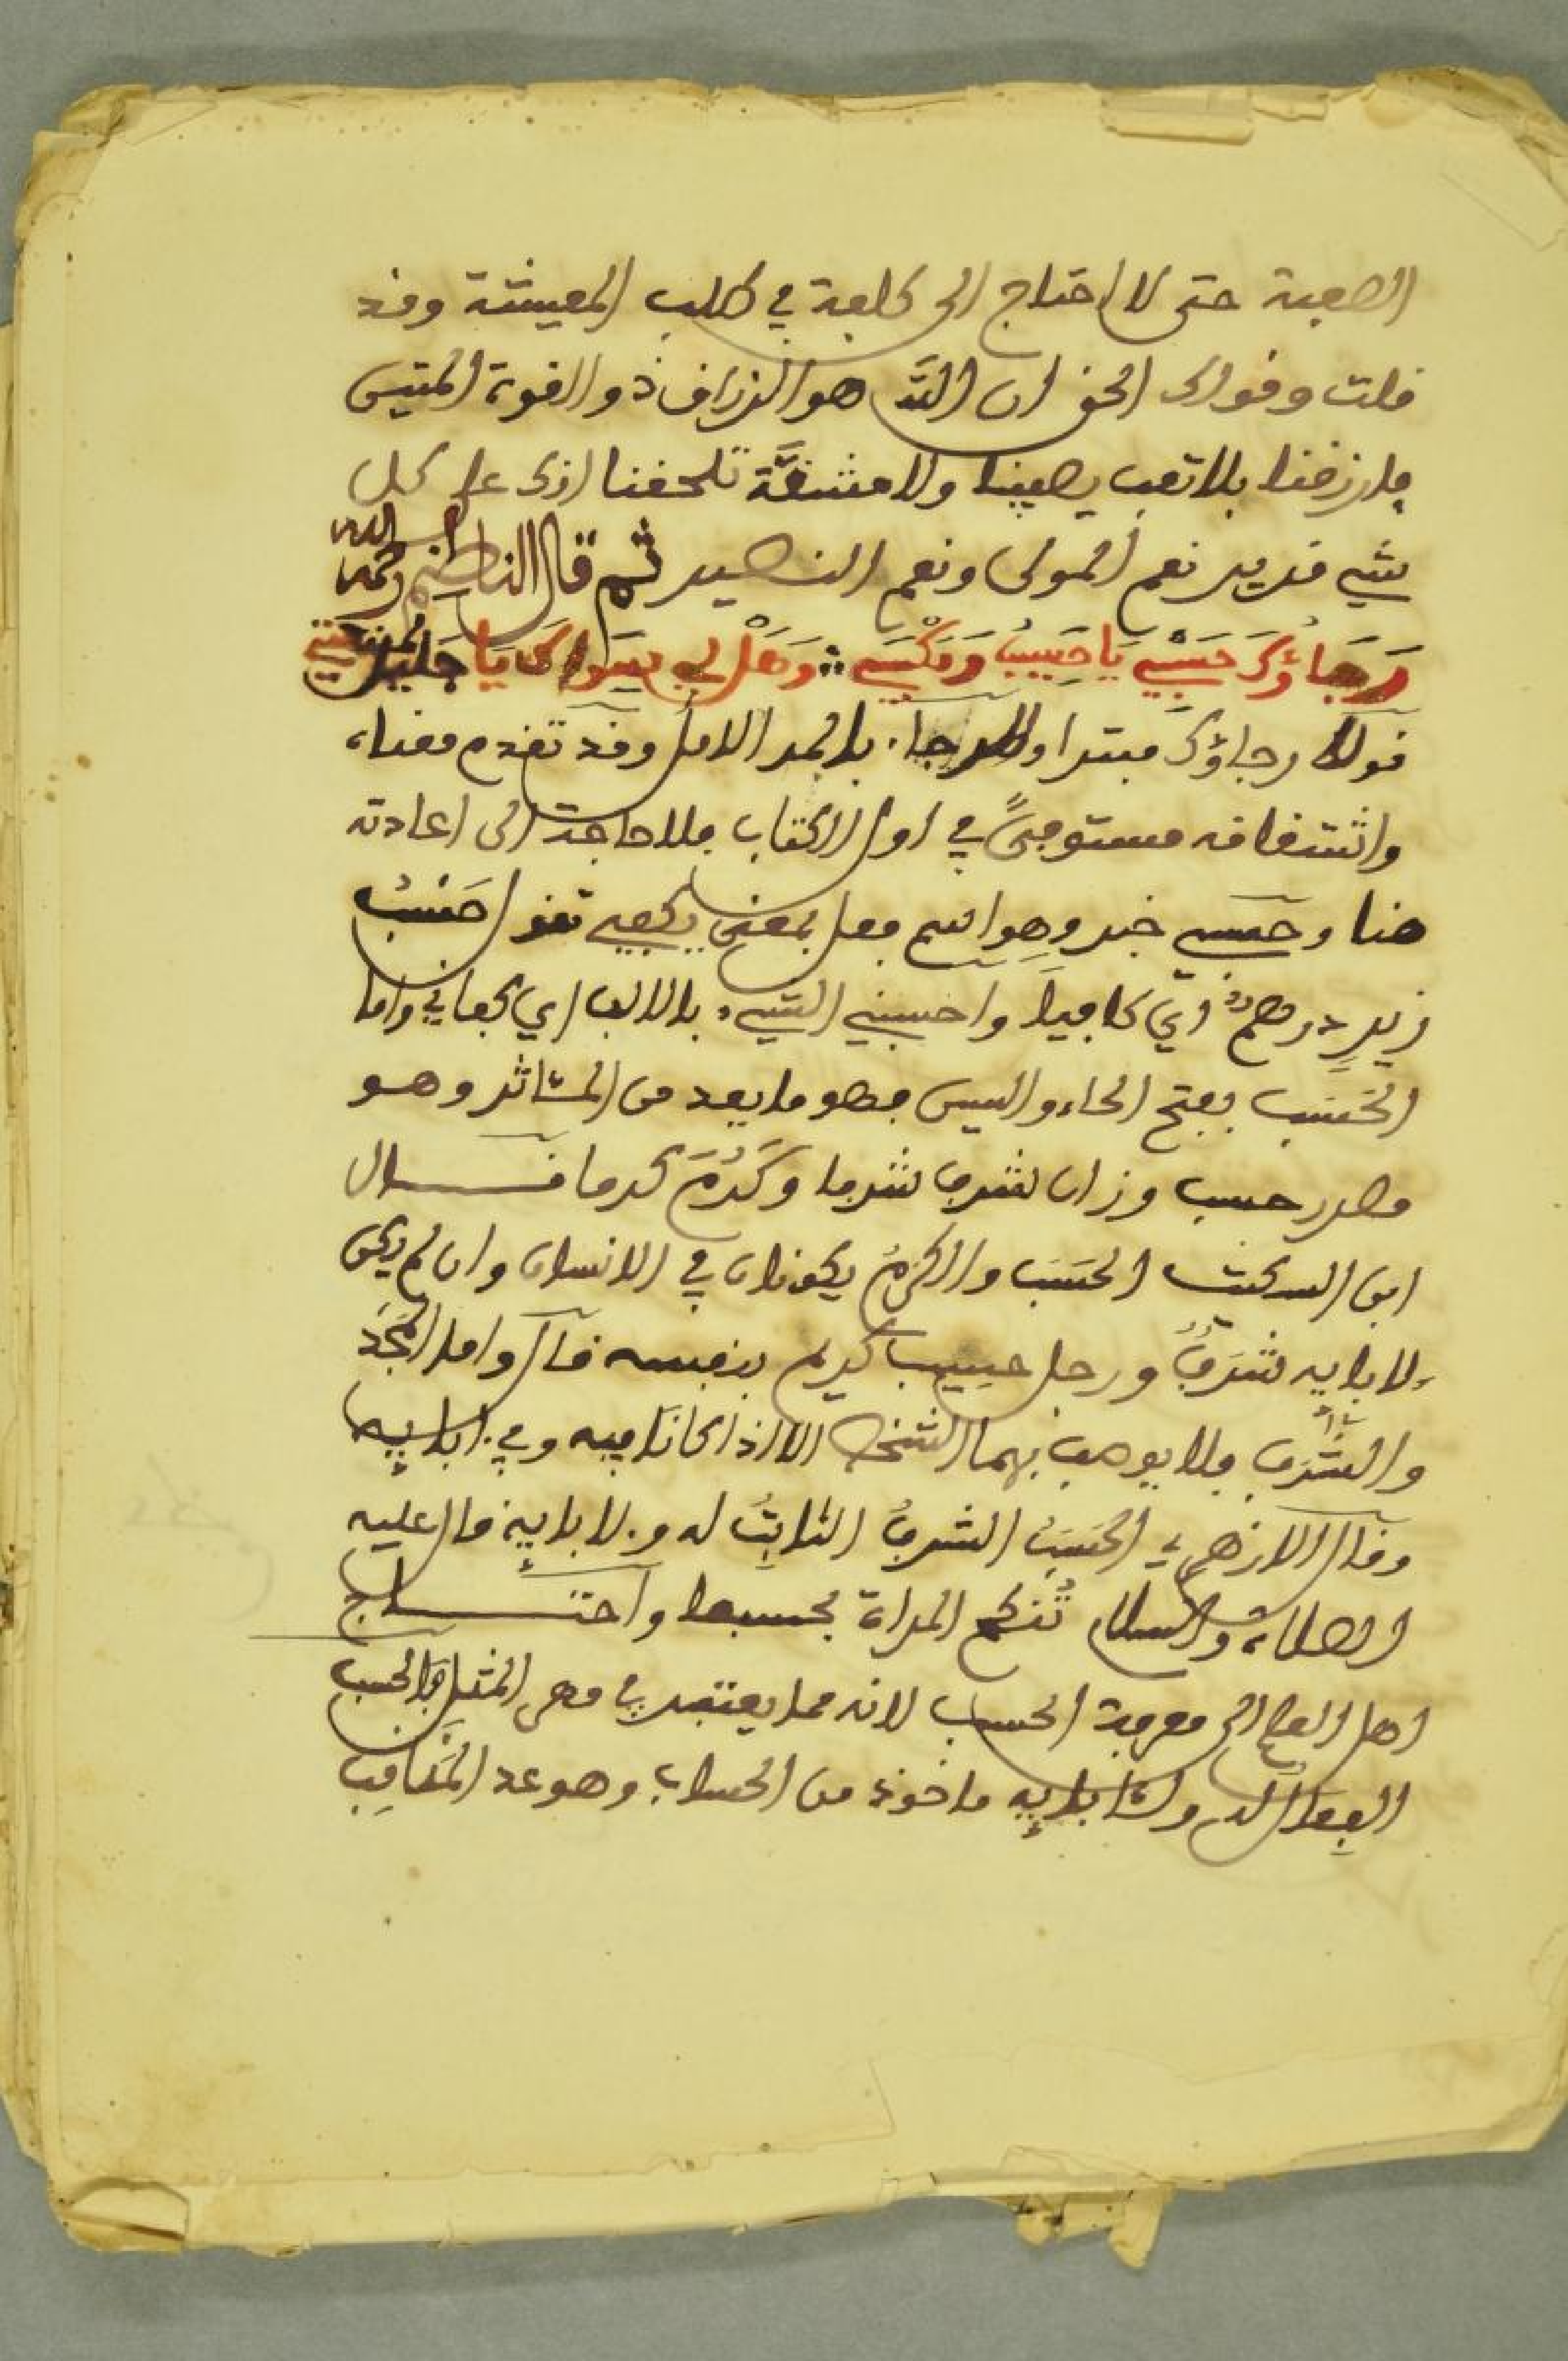 الصعبة حتى لا احتاج الى كلفة في طلب المعيشة وقد
قلت وقولك الحق ان اللَّه هو الرزاق ذو القوة المتين
فارزقنا بلا تعب يصيبنا ولا مشقَّة تلحقنا انك على كل
شيء قدير نعم المولى ونعم النصير ثم قال الناظم رحمه الله
رَجَاؤُكَ حَسْبِي يَا حَبِيبُ وَمَكْسَبِي ∴ وَهَلْ لِي سِوَاكَ يَا جَلِيلُ
قوله رجاؤك مبتدا والرجاء بالمد الامل وقد تقدم معناه
واشتقاقه مستوفىً في اول الكتاب فلا حاجة الى اعادته
هنا وحسبي خبر وهو اسم فعل بمعنى يكفيني تقول حَسْبُ
زيدٍ درهمٌ اي كافيه واحسبني الشيء بالالف اي كفاني واما
الحَسَب بفتح الحاء والسين فهو ما يعد من المئاثر وهو
مصدر حسب وزان شرف شرفا وكَرُمَ كرما قال
ابن السكيت الحَسَب والكرمُ يكونان في الانسان وان لم يكن
لابايه شَرَفٌ ورجل حسيب كريم بنفسه قال واما المَجْدُ
والشَّرَف فلا يوصف بهما الشخص الا اذا كانا فيه وفي ابايه
وقال الازهري الحَسَبُ الشرفُ الثابِتُ له ولابايه قال عليه
الصلاة والسلام تُنكح المراة لحسبها واحتاج
اهل العلم الى معرفة الحسب لانه مما يعتبر في مهر المثل فالحسب
الفِعال له ولابايه ماخوذ من الحساب وهو عد المَنَاقِب